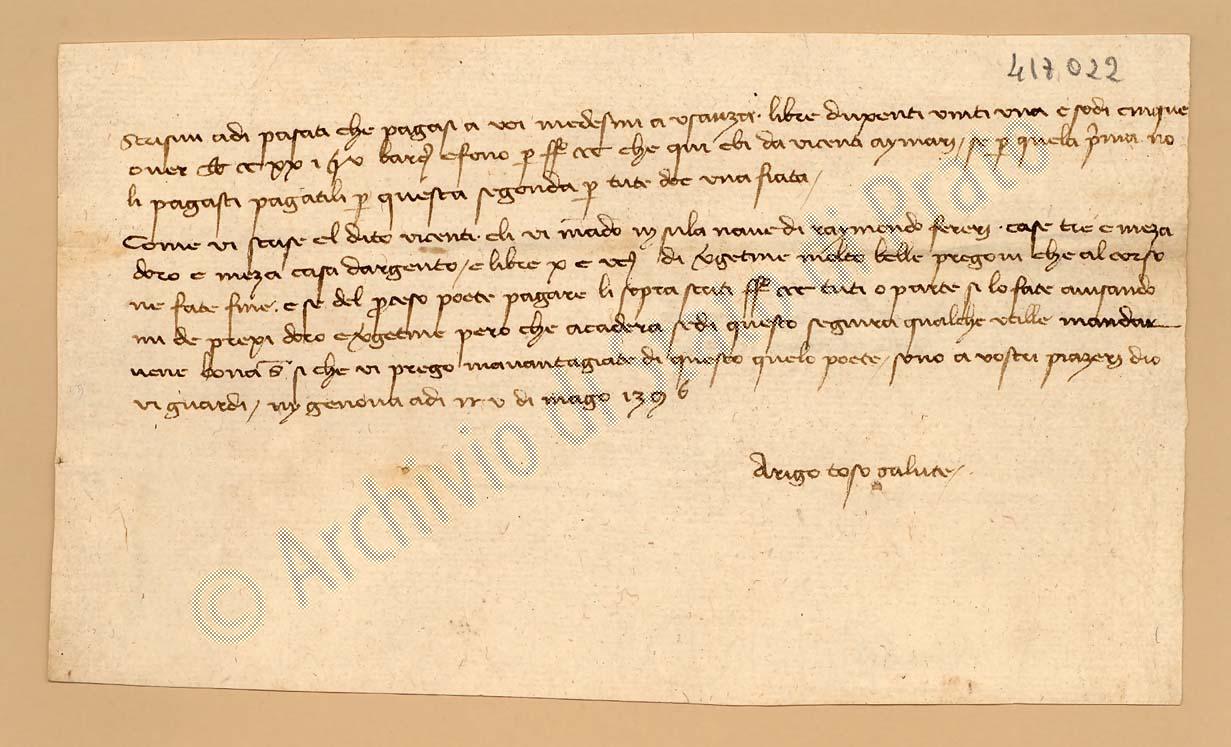 417.022
Scrisivi adi pasati che pagasi a voi medesimi a usanza libre duxenti vinti una e sodi cinque
over lb ccxxi s v barç e fono p ff cc che qui ebi da vicent aymari, se p quela prima no
li pagasti pagatili p questa segonda p tute doe una fiata
Come vi scrise el dito vicenti eli vi mado in su la nave di raymondo fereri case tre e meza
doro e meza casa dargento e libre x e di vgetine molto belle pregovi che al corso
ne fate fine e se del proceso poete pagare li sopra scriti ff cc tuti o parte si lo fate avisando
mi de prexi doro e vgetine pero che acadera se di questo seguira qualche utille mandar
vene bona s si che vi prego mavantagiate di questo quelo poete, sono a vostri piazeri dio
vi guardi, in genova adi v di mago 1396
Arigo toso salute
© Archivio di Stato di Prato